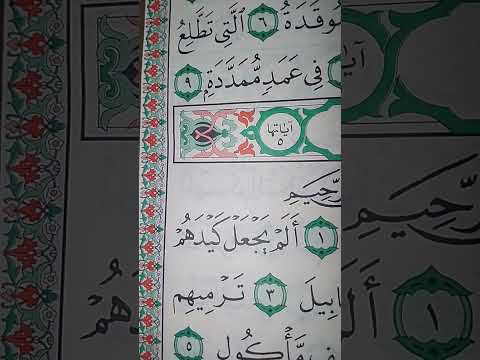 وقَدَةُ ٦ ٱلَّتِى تَطَّلِعُ
فِى عَمَدٍ مُّمَدَّدَةٍ ٩
آياتها
٥
رَّحِيمِ
١ أَلَمْ يَجْعَلْ كَيْدَهُمْ
ابِيلَ ٣ تَرْمِيهِم
فٍ مَّأْكُولٍ ٥